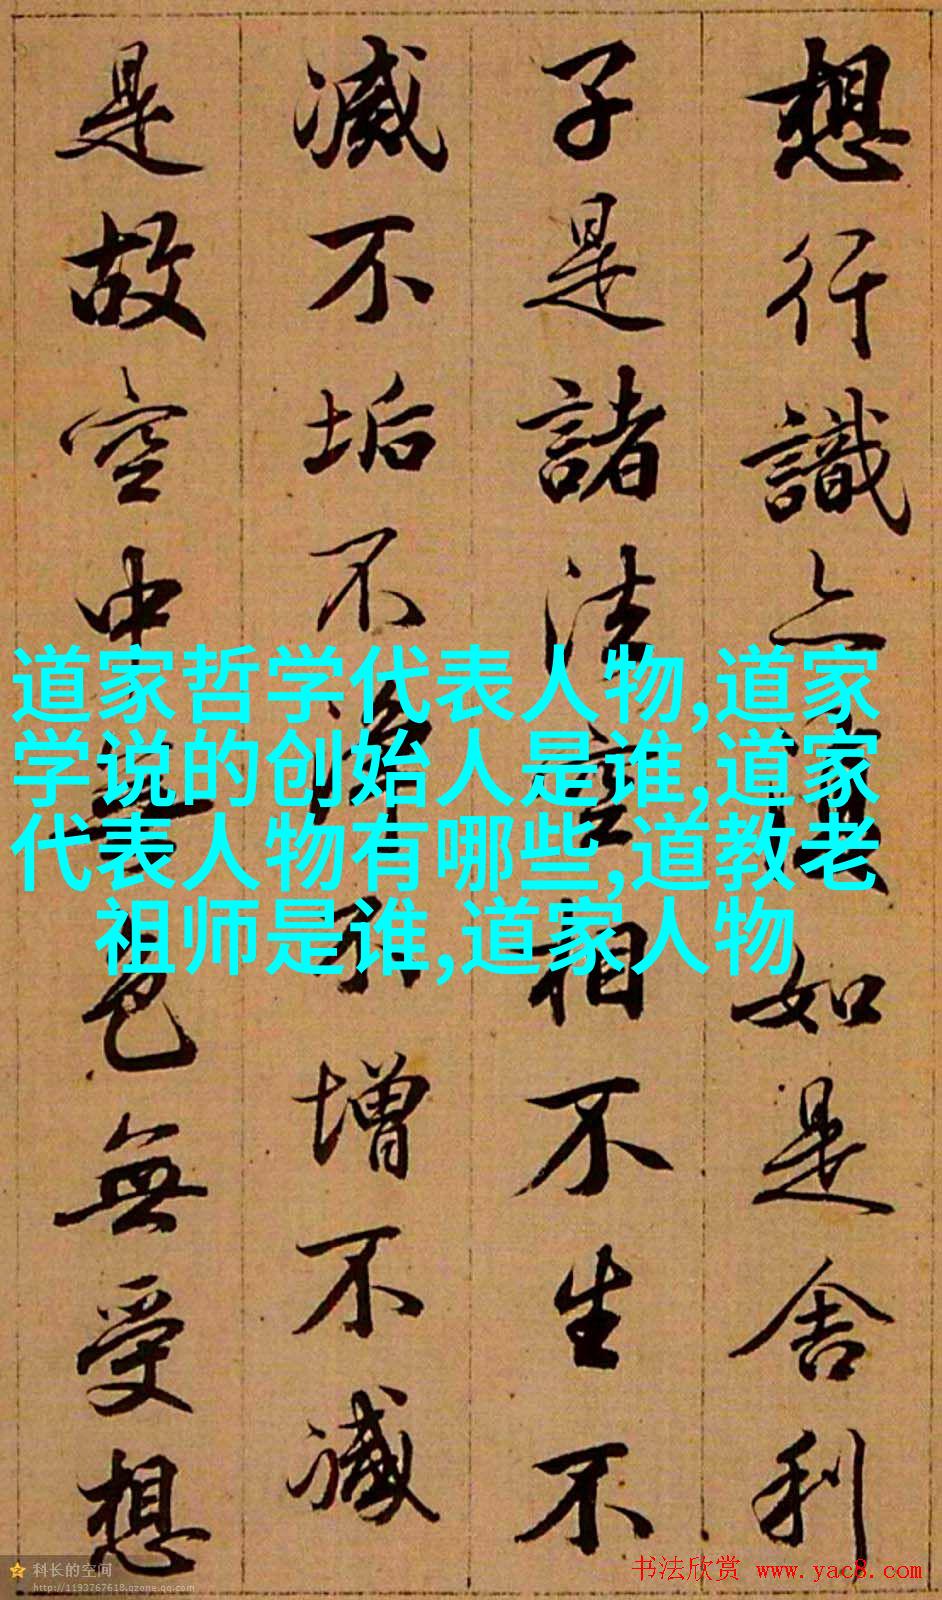 想行識亦復如是舍利
子是諸法空相不生不
滅不垢不淨不增不減
是故空中無色無受想
道家哲学代表人物,道家
学说的创始人是谁,道家
代表人物有哪些,道教老
祖师是谁,道家人物
科长的空间
http://1193767618.qzone.qq.com
书法欣赏 www.yac8.com